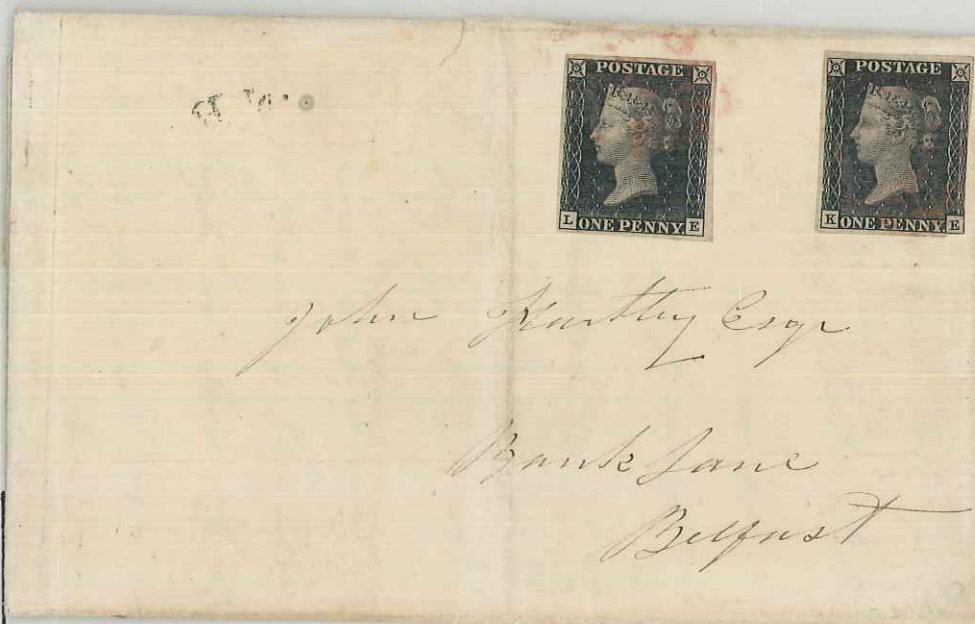 POSTAGE
ONE PENNY
L E
POSTAGE
ONE PENNY
K E
John Esqr
Bank Lane
Belfast